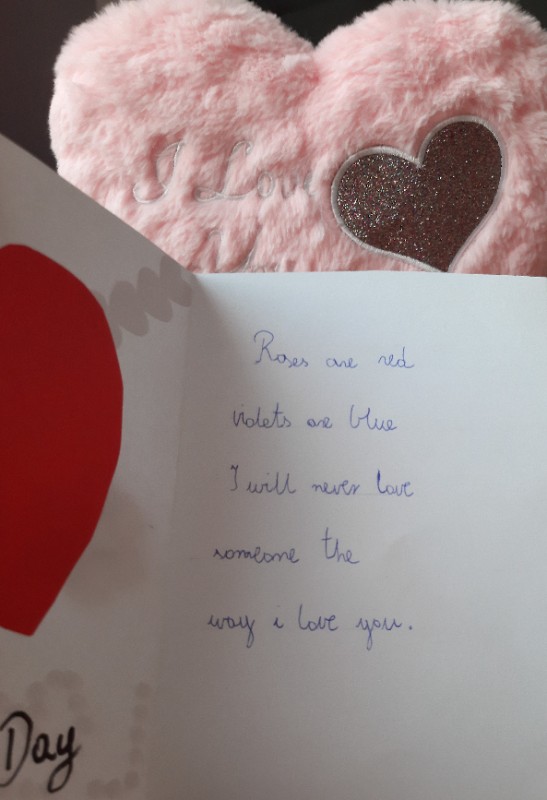 I Love
Roses are red
violets are blue
I will never love
someone the
way i love you.
Day